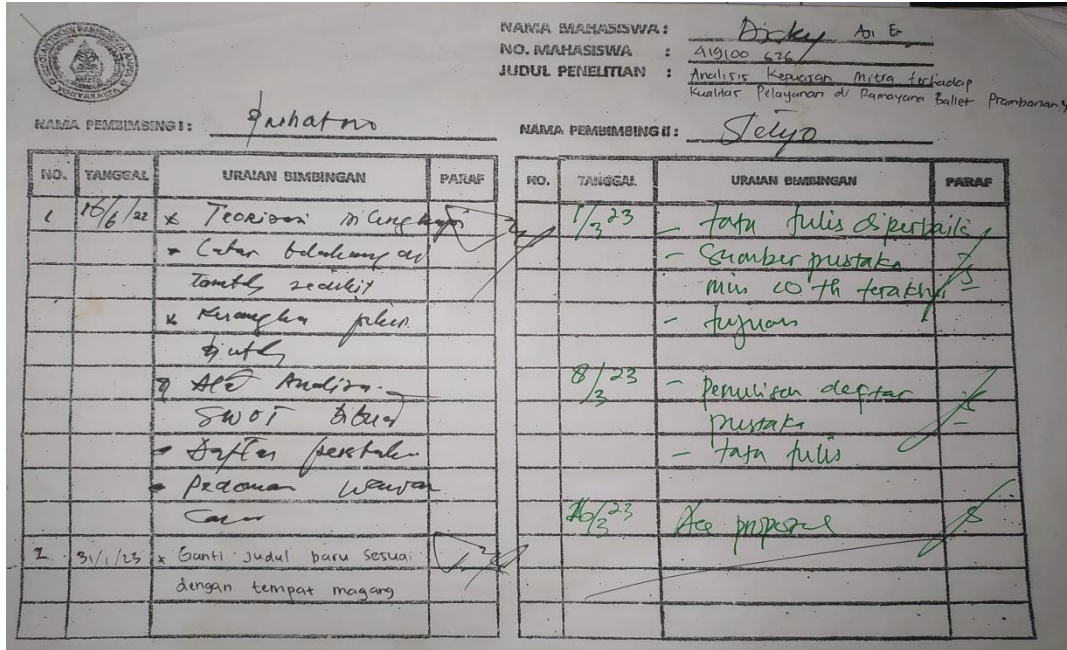 NAMA MAHASISWA : Dicky Adi E
NO. MAHASISWA : 419100 626
JUDUL PENELITIAN : Analisis Kepuasan Mitra terhadap
Kualitas Pelayanan di Ramayana Ballet Prambanan
NAMA PEMBIMBING I : Prihatno
NAMA PEMBIMBING II : Setyo
NO. TANGGAL URAIAN BIMBINGAN PARAF
1 16/6/22 * Teorisasi dilengkapi
* Latar belakang di
tambah sedikit
* Kerangka pikir
* Alat Analisa
SWOT dibuat
* Daftar
* Pedoman wawan
cara
2 31/1/23 * Ganti judul baru sesuai
dengan tempat magang
NO. TANGGAL URAIAN BIMBINGAN PARAF
1/3 23 - tata tulis diperbaiki
- Sumber pustaka
min 10 th terakhir
- tujuan
8/3 23 - penulisan daftar
pustaka
- tata tulis
16/3 23 Acc proposal